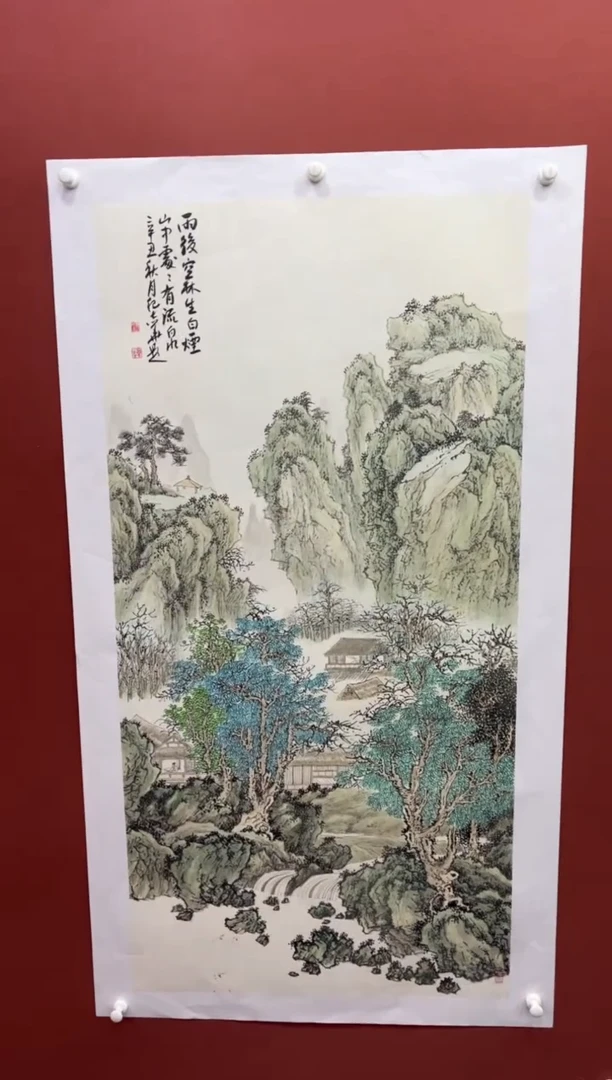 雨後空林生白煙
山中處〻有流泉
辛丑秋月紀